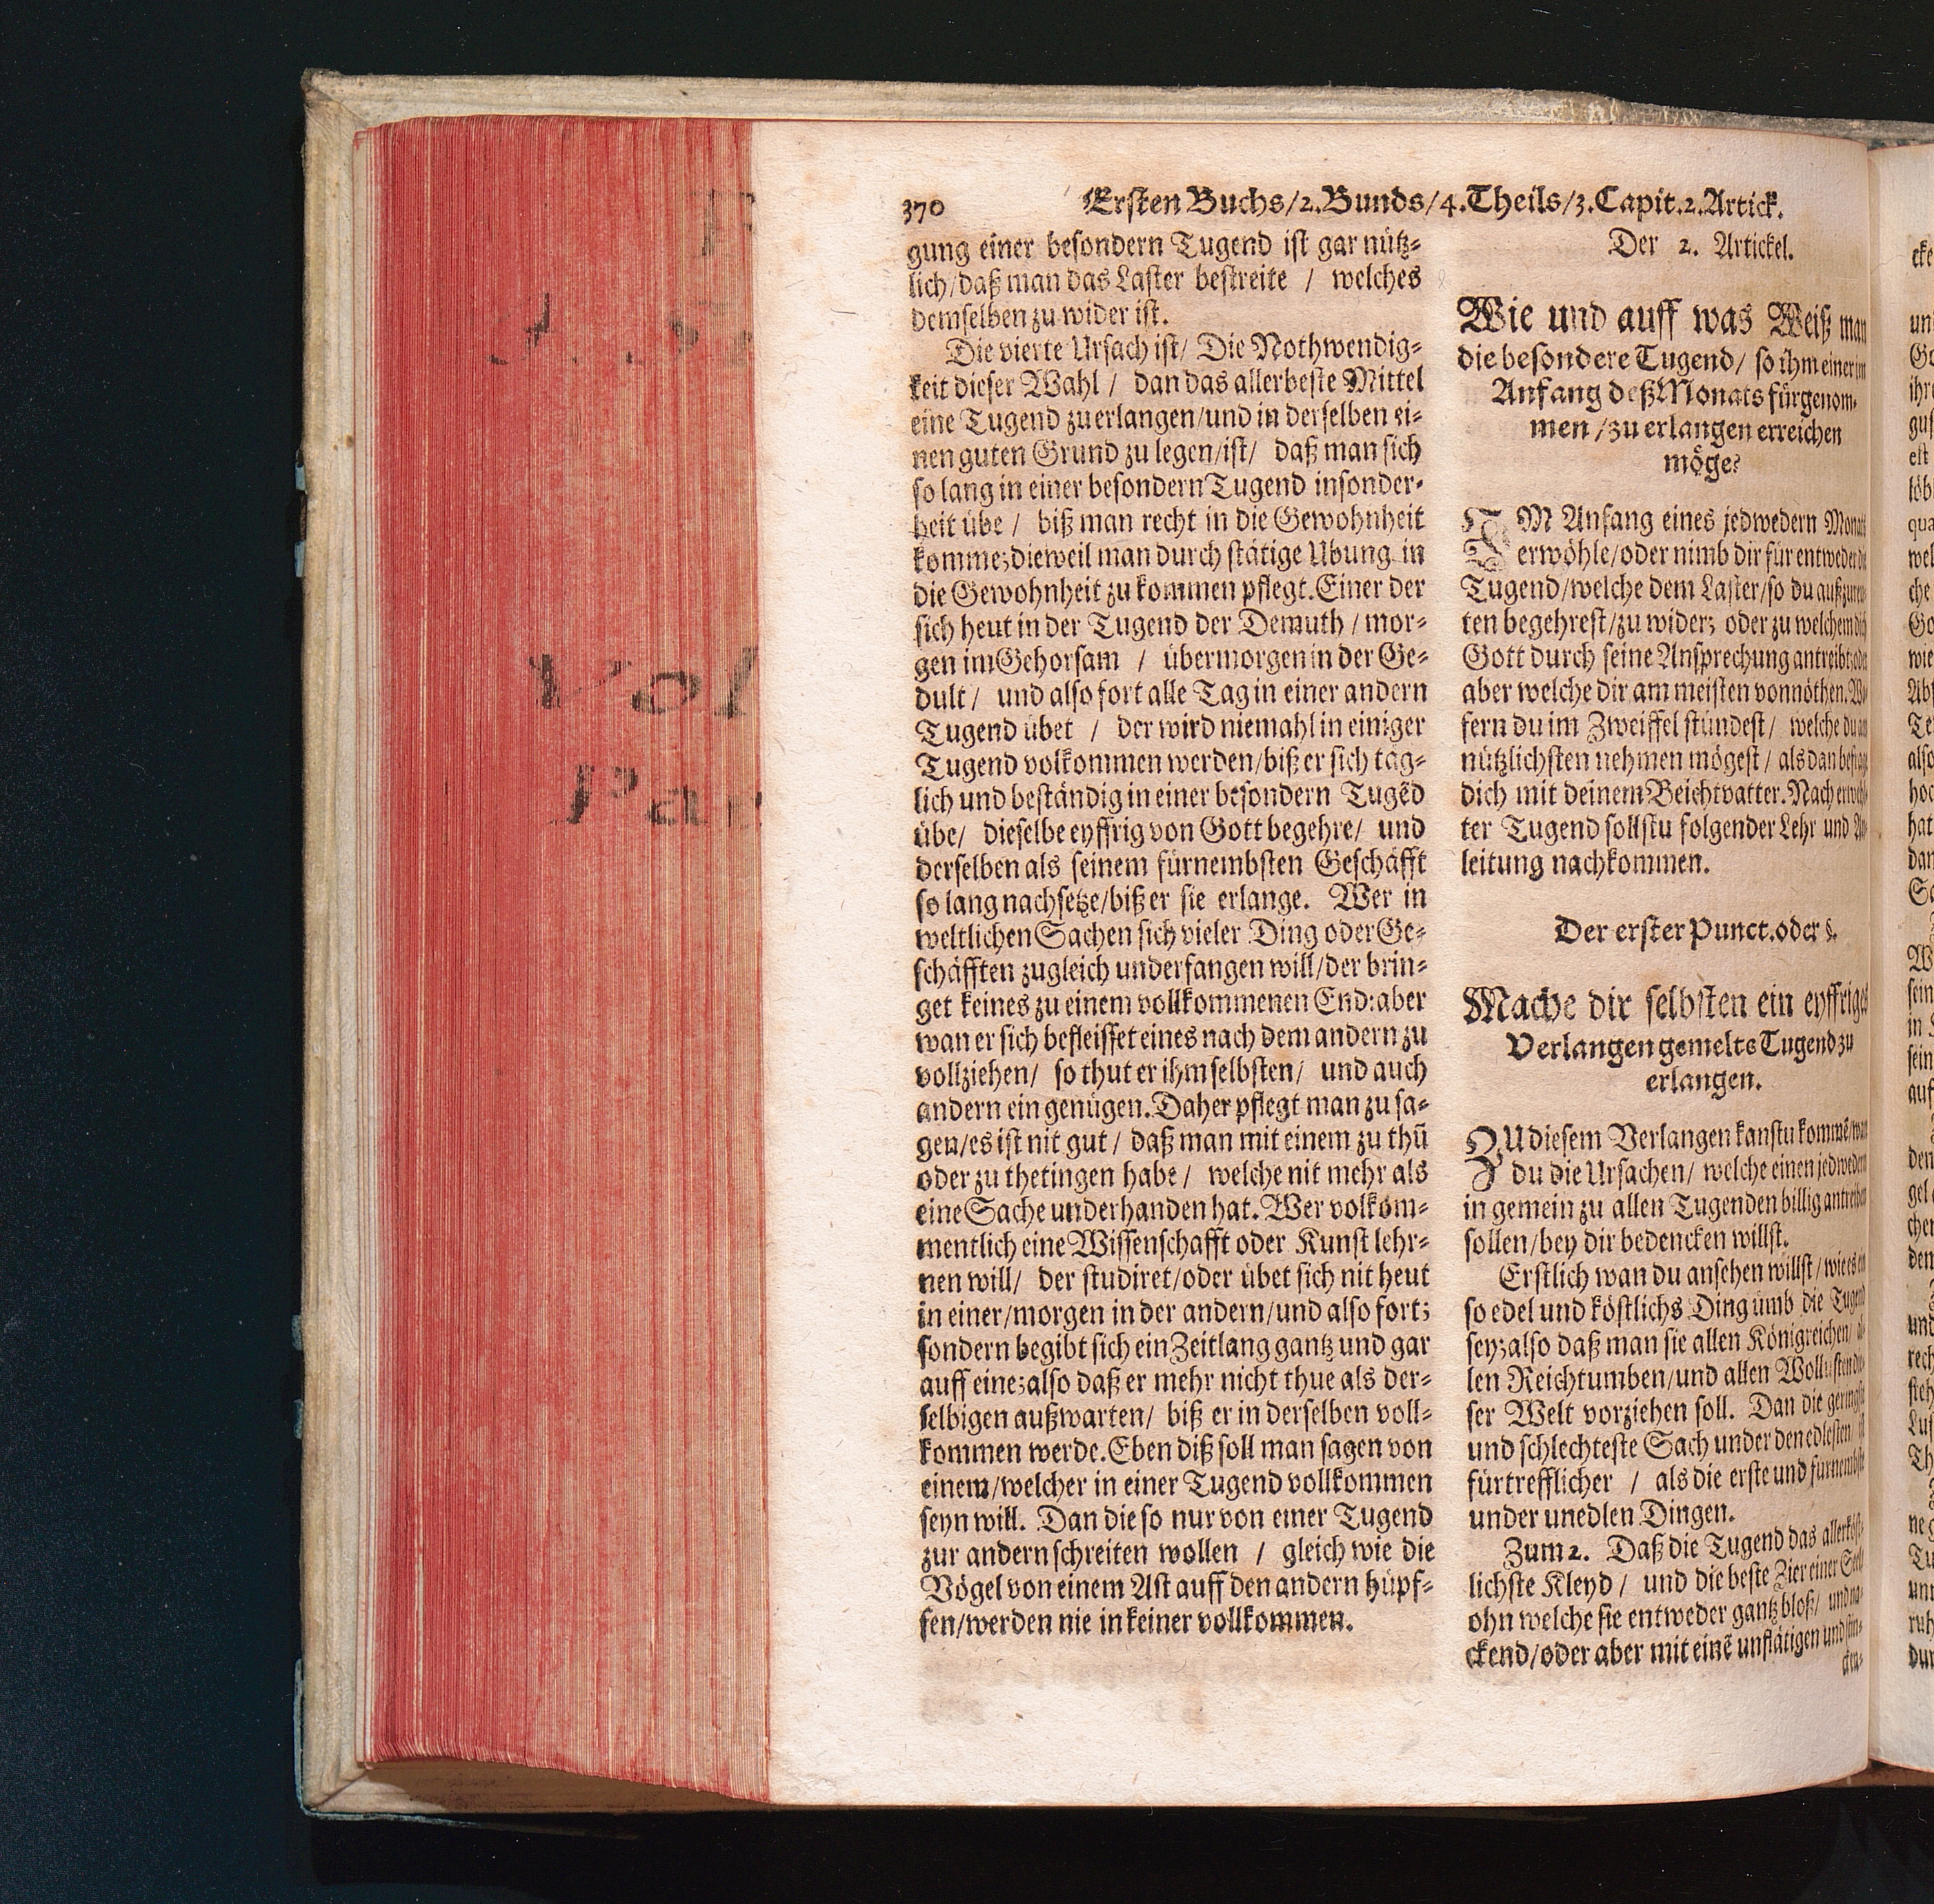 370 Ersten Buchs/2.Bunds/4.Theils/3.Capit.2.Artick.
gung einer besondern Tugend ist gar nütz-
lich/daß man das Laster bestreite / welches
demselben zu wider ist.
Die vierte Ursach ist/ Die Nothwendig-
keit dieser Wahl / dan das allerbeste Mittel
eine Tugend zuerlangen/und in derselben ei-
nen guten Grund zu legen/ist/ daß man sich
so lang in einer besondern Tugend insonder-
heit übe / biß man recht in die Gewohnheit
komme; dieweil man durch stätige Ubung in
die Gewohnheit zu kommen pflegt. Einer der
sich heut in der Tugend der Demuth / mor-
gen im Gehorsam / übermorgen in der Ge-
dult / und also fort alle Tag in einer andern
Tugend übet / der wird niemahl in einiger
Tugend volkommen werden/biß er sich täg-
lich und beständig in einer besondern Tugēd
übe/ dieselbe eyffrig von Gott begehre/ und
derselben als seinem fürnembsten Geschäfft
so lang nachsetze/biß er sie erlange. Wer in
weltlichen Sachen sich vieler Ding oder Ge-
schäfften zugleich underfangen will/der brin-
get keines zu einem vollkommenen End: aber
wan er sich befleisset eines nach dem andern zu
vollziehen/ so thut er ihm selbsten/ und auch
andern ein genügen. Daher pflegt man zu sa-
gen/es ist nit gut / daß man mit einem zu thū
oder zu thetingen habe / welche nit mehr als
eine Sache underhanden hat. Wer volkom-
mentlich eine Wissenschafft oder Kunst lehr-
nen will/ der studiret/oder übet sich nit heut
in einer/morgen in der andern/und also fort;
sondern begibt sich ein Zeitlang gantz und gar
auff eine; also daß er mehr nicht thue als der-
selbigen außwarten/ biß er in derselben voll-
kommen werde. Eben diß soll man sagen von
einem/welcher in einer Tugend vollkommen
seyn will. Dan die so nur von einer Tugend
zur andern schreiten wollen / gleich wie die
Vögel von einem Ast auff den andern hüpf-
fen/werden nie in keiner vollkommen.
Der 2. Artickel.
Wie und auff was Weiß man
die besondere Tugend/ so ihm einer im
Anfang deß Monats fürgenom-
men / zu erlangen erreichen
möge?
IM Anfang eines jedwedern Monats
erwöhle/oder nimb dir für entweder die
Tugend/welche dem Laster/so du außzureu-
ten begehrest/zu wider; oder zu welchem dich
Gott durch seine Ansprechung antreibt; oder
aber welche dir am meisten vonnöthen. Wo-
fern du im Zweiffel stündest/ welche du am
nützlichsten nehmen mögest / als dan befrage
dich mit deinem Beichtvatter. Nach erwehl-
ter Tugend sollstu folgender Lehr und An-
leitung nachkommen.
Der erster Punct. oder §.
Mache dir selbsten ein eyffriges
Verlangen gemelte Tugend zu
erlangen.
ZU diesem Verlangen kanstu kommē/wan
du die Ursachen/ welche einen jedwedern
in gemein zu allen Tugenden billig antreiben
sollen/bey dir bedencken willst.
Erstlich wan du ansehen willst / wie es ein
so edel und köstlichs Ding umb die Tugend
sey; also daß man sie allen Königreichen/ al-
len Reichtumben/und allen Wollüsten die-
ser Welt vorziehen soll. Dan die geringste
und schlechteste Sach under den edlesten ist
fürtrefflicher / als die erste und fürnembste
under unedlen Dingen.
Zum 2. Daß die Tugend das allerköst-
lichste Kleyd / und die beste Zier einer Seel
ohn welche sie entweder gantz bloß/ und na-
ckend/oder aber mit einē unflätigen und stin-
cken-